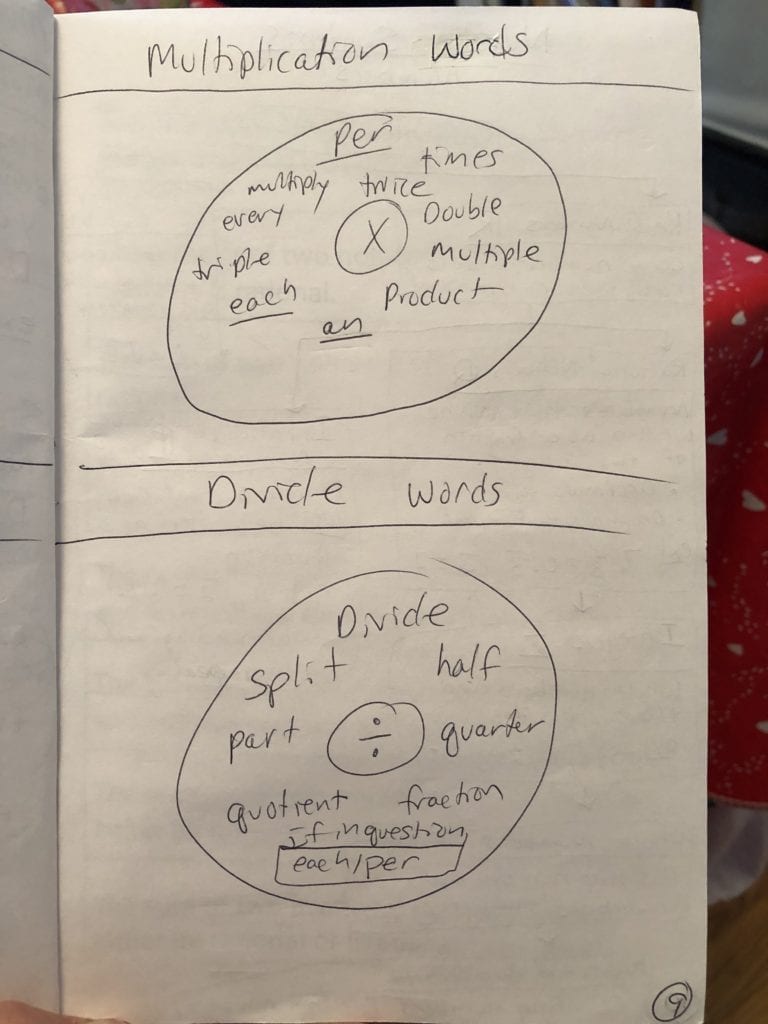 Multiplication Words
per
times
multiply twice
every Double
X
triple Multiple
each Product
an
Divide Words
Divide
split half
part ÷ quarter
quotient fraction
if in question
each/per
9